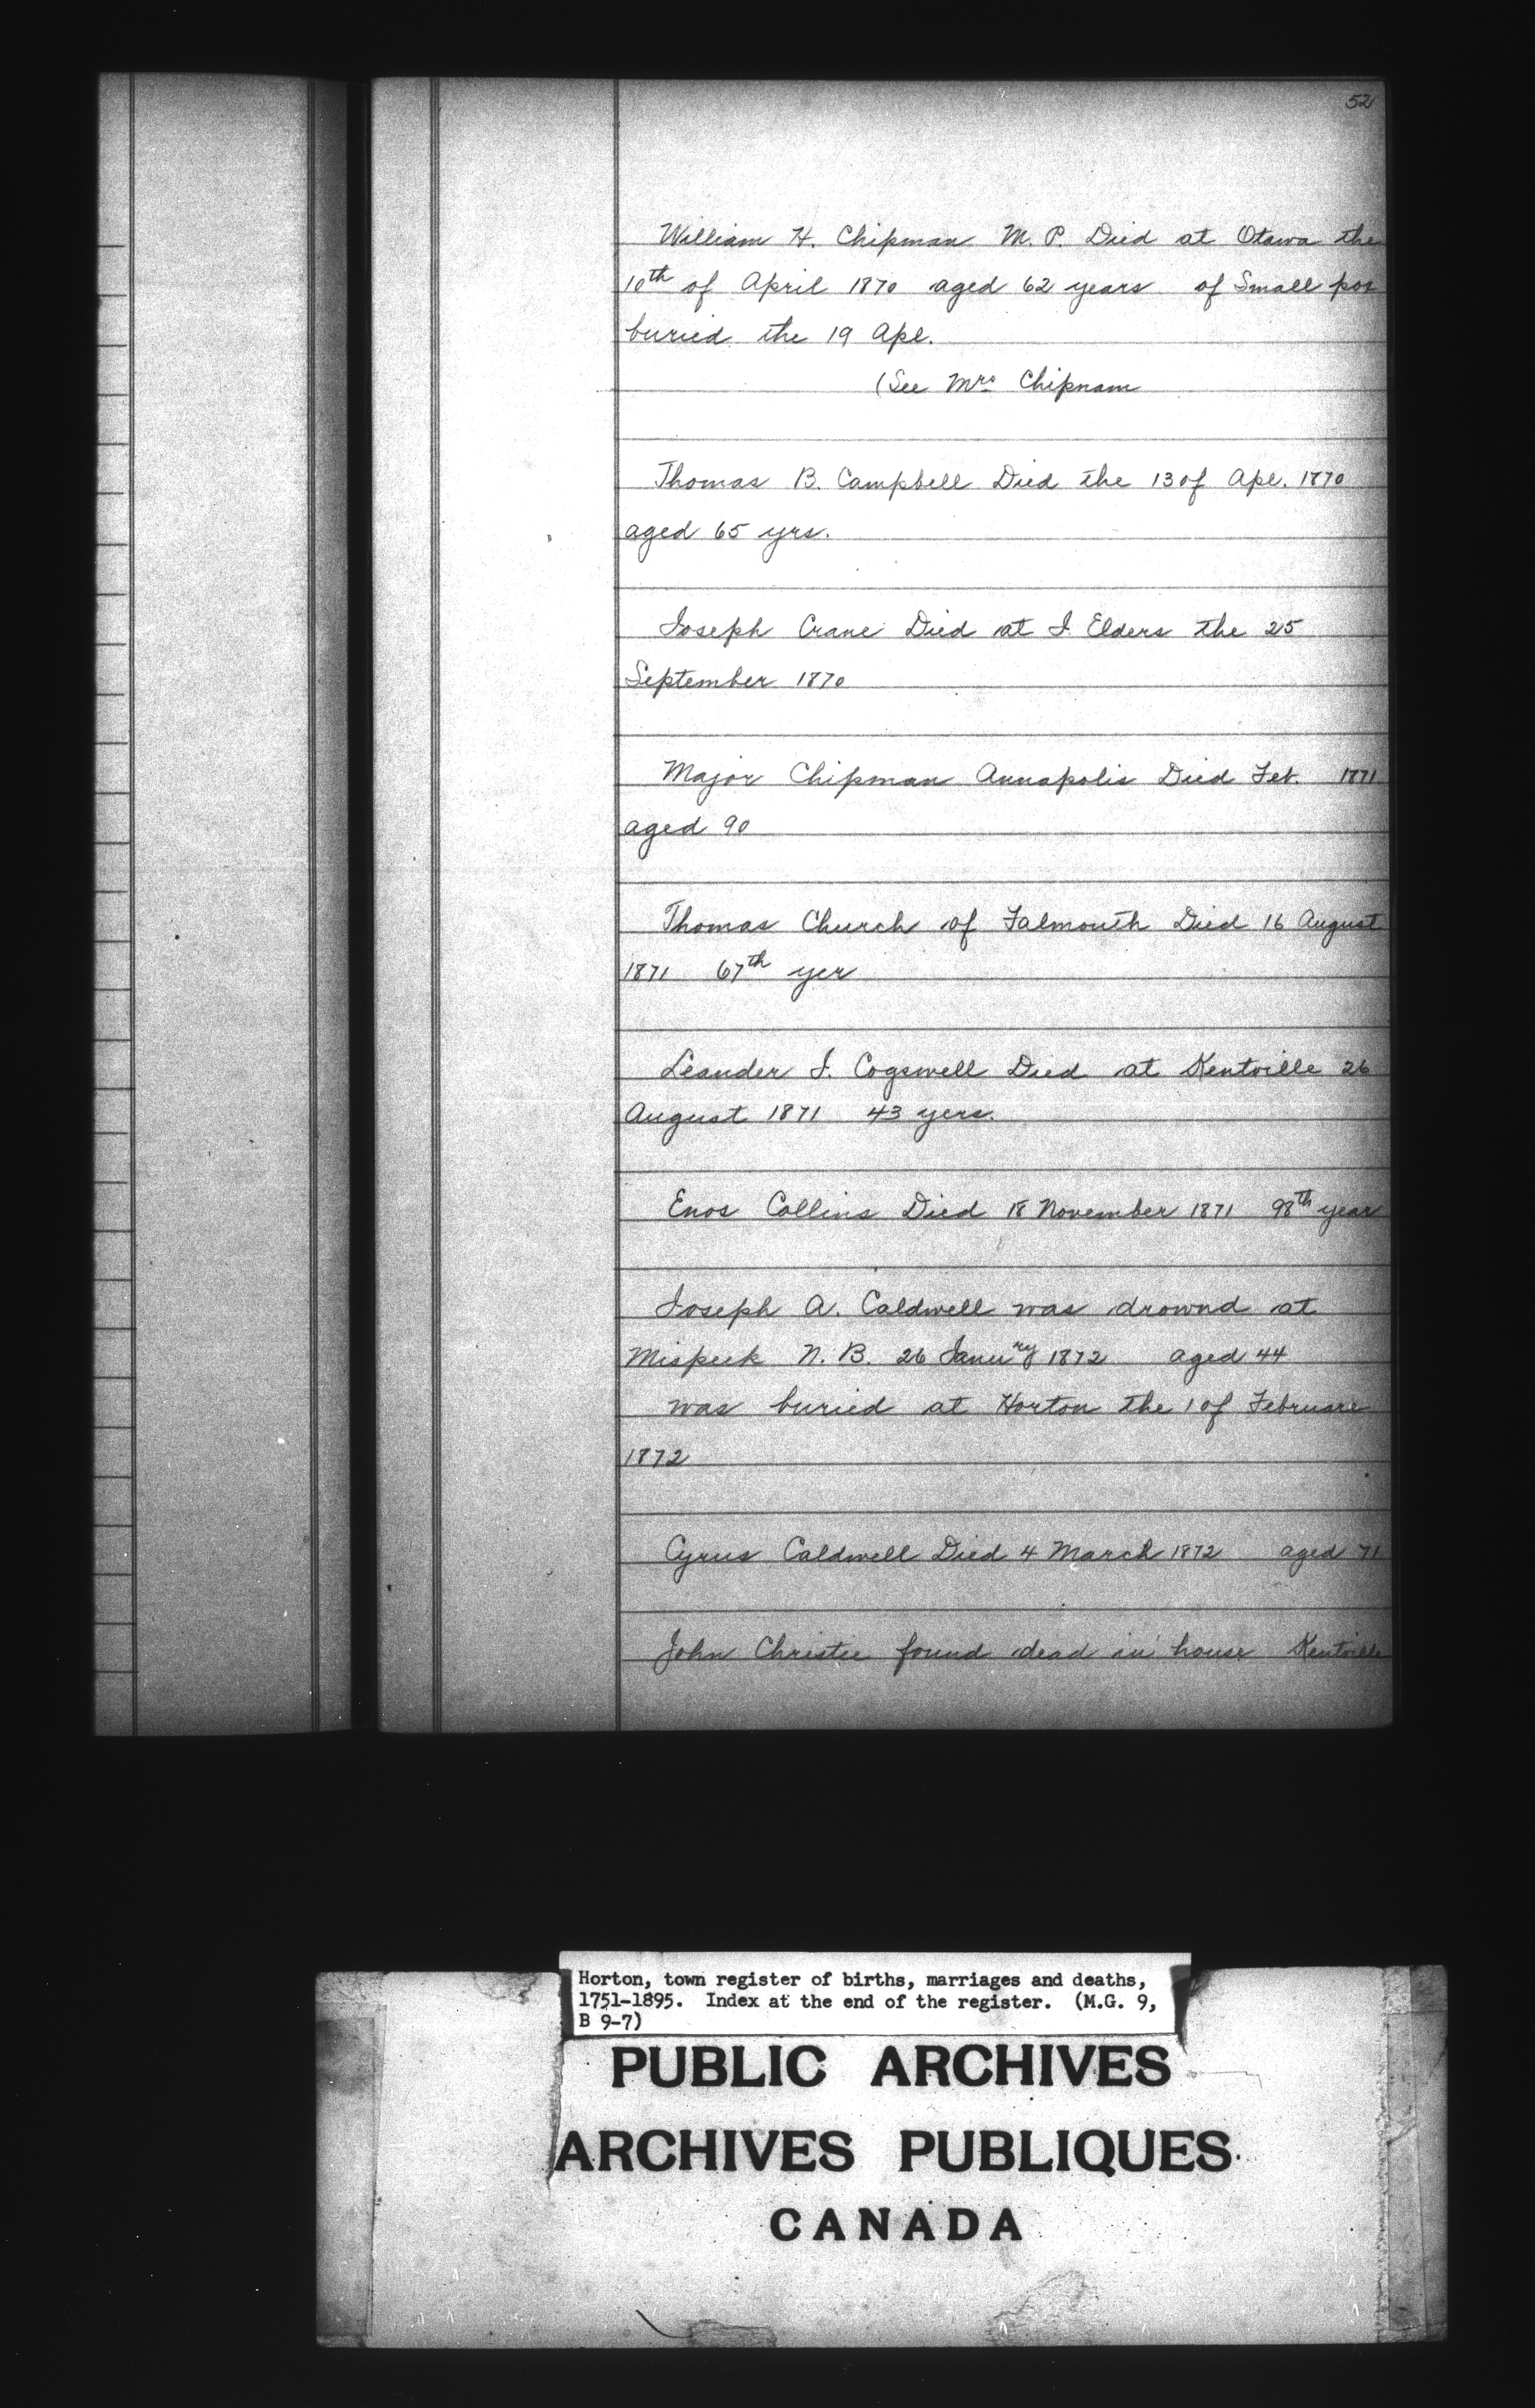 52
William H. Chipman M. P. Died at Otawa the
10th of April 1870 aged 62 years of Small pox
buried the 19 Apl.
(See Mrs Chipnam
Thomas B. Campbell Died the 13 of Apl. 1870
aged 65 yrs.
Joseph Crane Died at J. Elders the 25
September 1870
Major Chipman Annapolis Died Feb. 1871
aged 90
Thomas Church of Falmouth Died 16 August
1871 67th yer
Leander J. Cogswell Died at Kentville 26
August 1871 43 yers.
Enos Collins Died 18 November 1871 98th year
Joseph A. Caldwell was drownd at
Mispeck N. B. 26 Janury 1872 aged 44
was buried at Horton the 1 of Februare
1872
Cyrus Caldwell Died 4 March 1872 aged 71
John Christie found dead in house Kentville
Horton, town register of births, marriages and deaths,
1751-1895. Index at the end of the register. (M.G. 9,
B 9-7)
PUBLIC ARCHIVES
ARCHIVES PUBLIQUES
CANADA